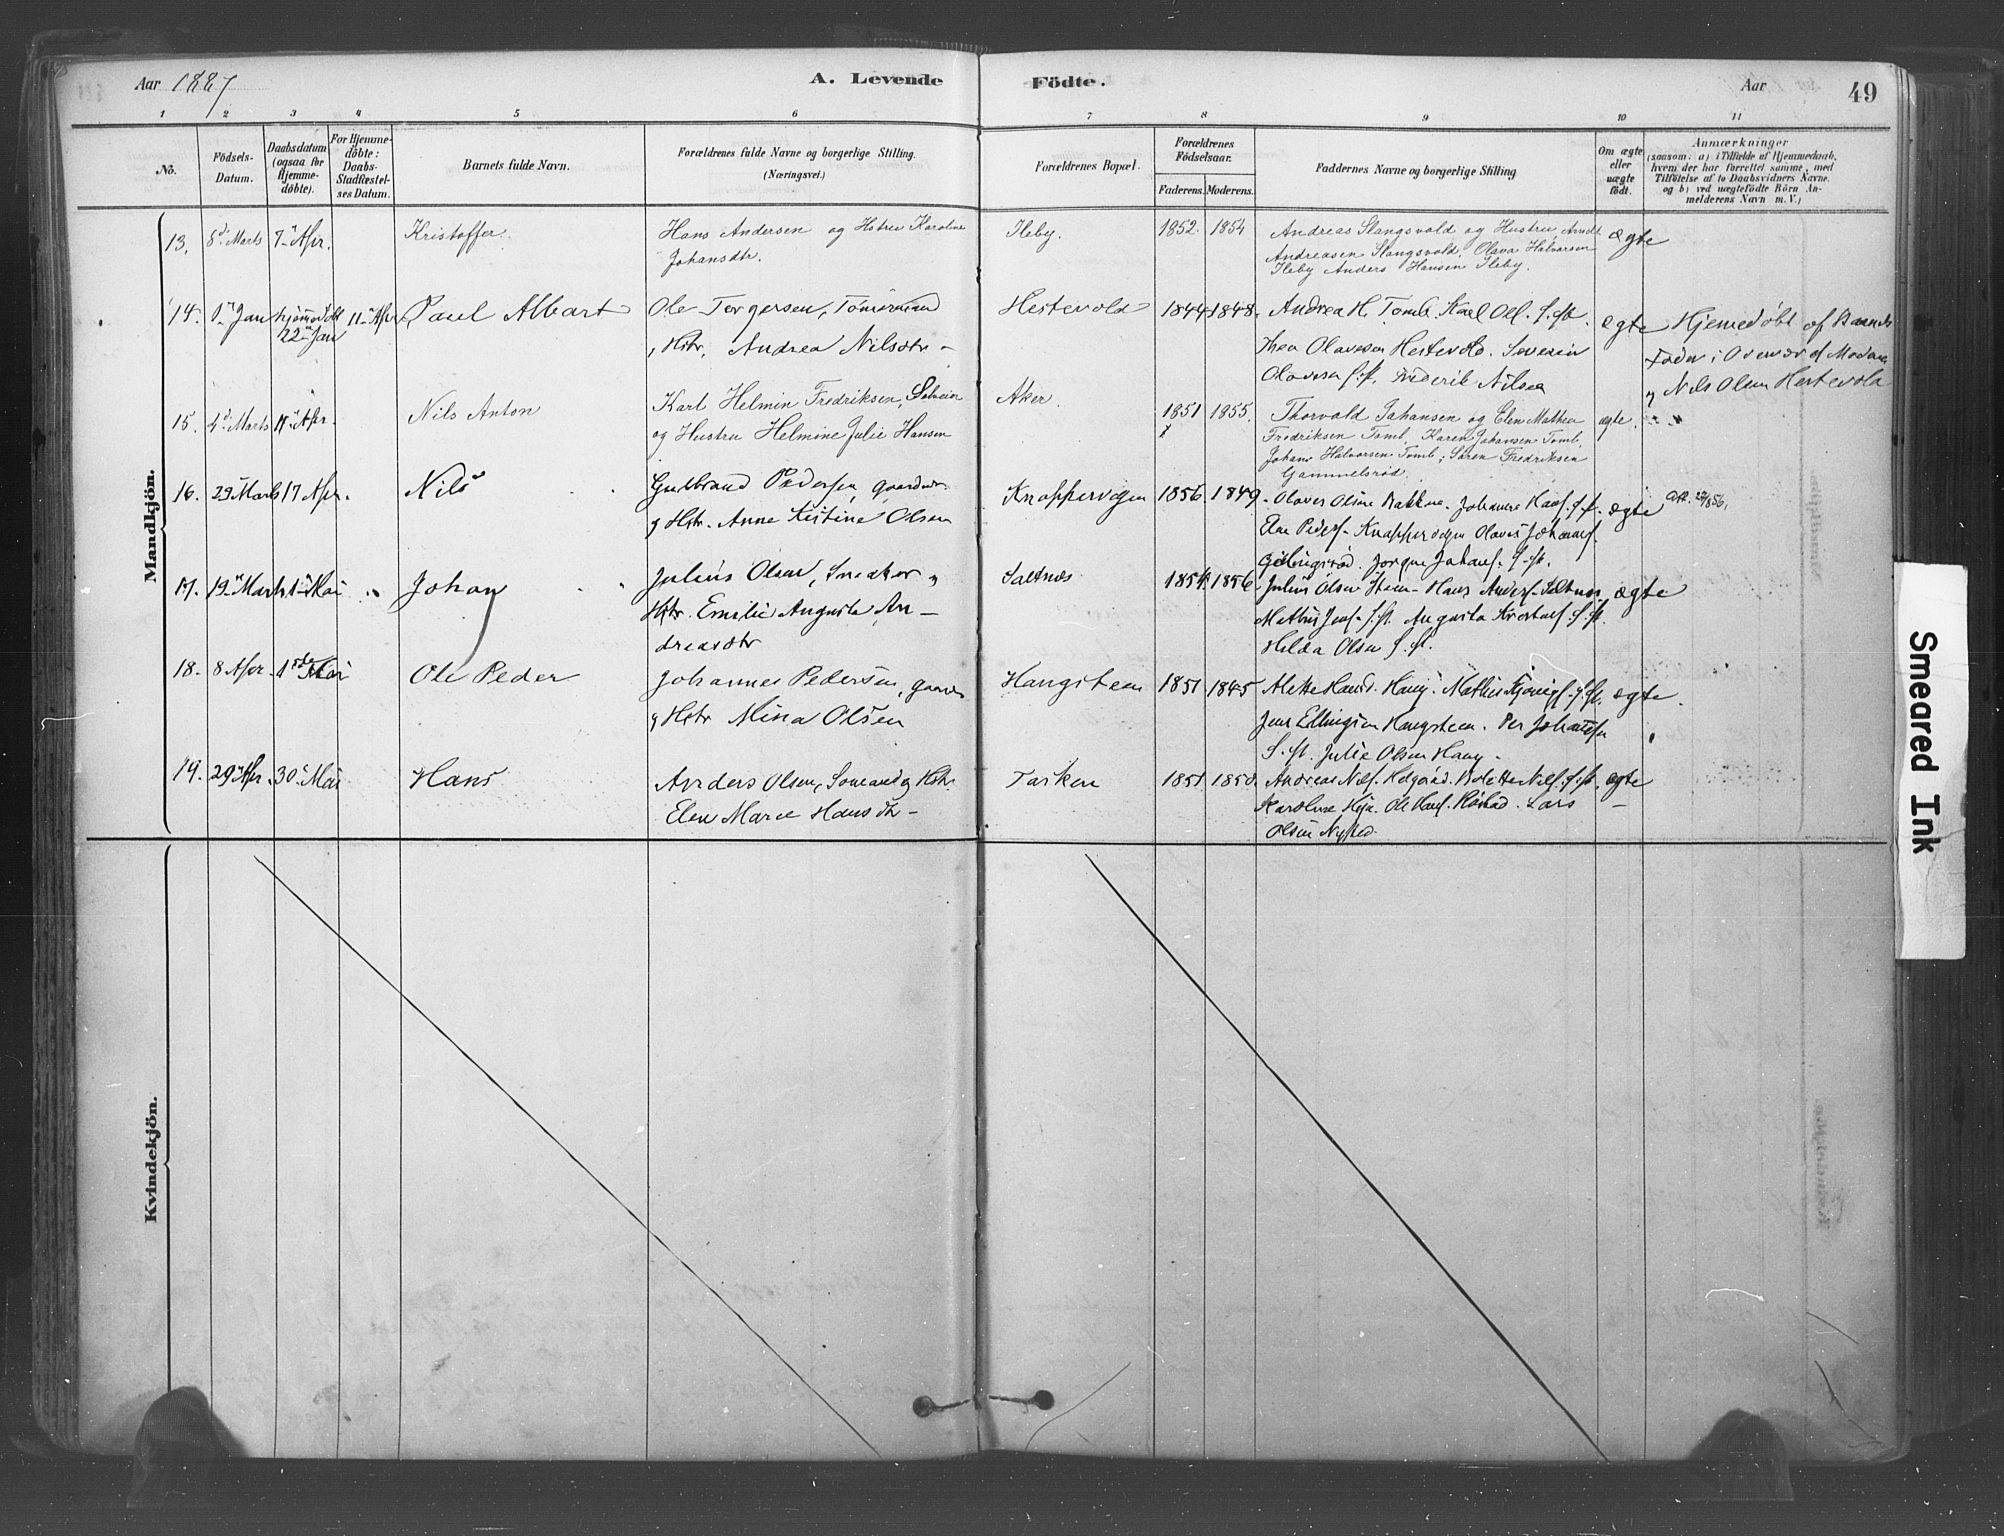 Aar 1887
A. Levende
Födte.
Aar
49
1 2 3 4 5 6 7 8 9 10 11
No.
Födsels-
Datum.
Daabsdatum
(ogsaa for
Hjemme-
döbte).
For Hjemme-
döbte:
Daabs-
Stadfæstel-
ses Datum.
Barnets fulde Navn.
Forældrenes fulde Navne og borgerlige Stilling.
(Næringsvei.)
Forældrenes Bopæl.
Forældrenes
Födselsaar.
Faderens. Moderens.
Faddernes Navne og borgerlige Stilling
Om ægte
eller
uægte
födt.
Anmærkninger
(saasom: a) i Tilfælde af Hjemmedaab,
hvem der har forrettet samme, med
Tilföielse af to Daabsvidners Navne.
og b) ved uægtefödte Börn An-
melderens Navn m. V.)
Mandkjön.
13. 8d Marts 7 Apr. Kristoffer. Hans Andersen og Hstru Karoline
Johansdtr.
Ileby. 1852. 1854 Andreas Slangsvold og Hustru, Arndt
Andreasen Slangsvold, Olava Halvorsen
Ileby Anders Hansen Ileby.
ægte
14. Jan hjemmedøbt 22 Jan 11 Apr. Paul Albart Ole Torgersen, Tömmermand
, Hstr. Andrea Nilsdtr -
Hestevold 1844 1848. Andrea H. Tomb. Karl Ols. S. st.
Thea Olavesen Hestevold. Severin
Olavesen S. st. Frederik Nilsen
ægte Hjemedøbt af Barnets
Fader i Overvær af Moderen
og Nils Olsen Hestevold
15. 2d Marts 11 Apr. Nils Anton Karl Helmin Fredriksen, Selveier
og Hustru Helmine Julie Hansen
Aker. 1851 1855. Thorvald Johansen og Elen Mathea
Fredriksen Tomb, Karen Johansen Tomb,
Johans Halvorsen Tomb; Søren Fredriksen
Gammelsrød.
ægte.
16. 29 Marts 17 Apr. Nils Gudbrand Pedersen, gaardbr.
og Hstr. Anne Kristine Olsen
Knappervegen 1856. 1849. Olaves Olsen Bakkene. Johanne Hans. S. st.
Elen Peders. Knappervegen Olaves Johannes.
Jorgen Johans. S. st.
ægte
17. 19 Marts 1 Mai Johan Julius Olsen, Snedker og
Hstr. Emilie Augusta An-
dreasdtr
Saltnes 1854 1856 Julius Olsen Steen. Hans Anders. Saltnes,
Mathis Jens. S. st. Augusta Kristians. S. st.
Hilda Olsen S. st.
ægte
18. 8 Apr. 1ste Mai Ole Peder Johannes Pedersen, gaardbr
og Hstr Mina Olsen
Haugsteen 1851 1845 Alette Hansd. Haug. Mathis S. st.
Jens Ellingsen Haugsteen. Per Johannesen
S. st. Julie Olsen Haug.
ægte.
19. 29 Apr. 30 Mai Hans Anders Olsen, Sömand og Hstr.
Elen Marie Hansdtr -
Tasken 1851 1850. Andreas Nils. Bolette Nils. S. st.
Karoline Ole Hans. Lars
Olsen
ægte
Kvindekjön.
Smeared Ink